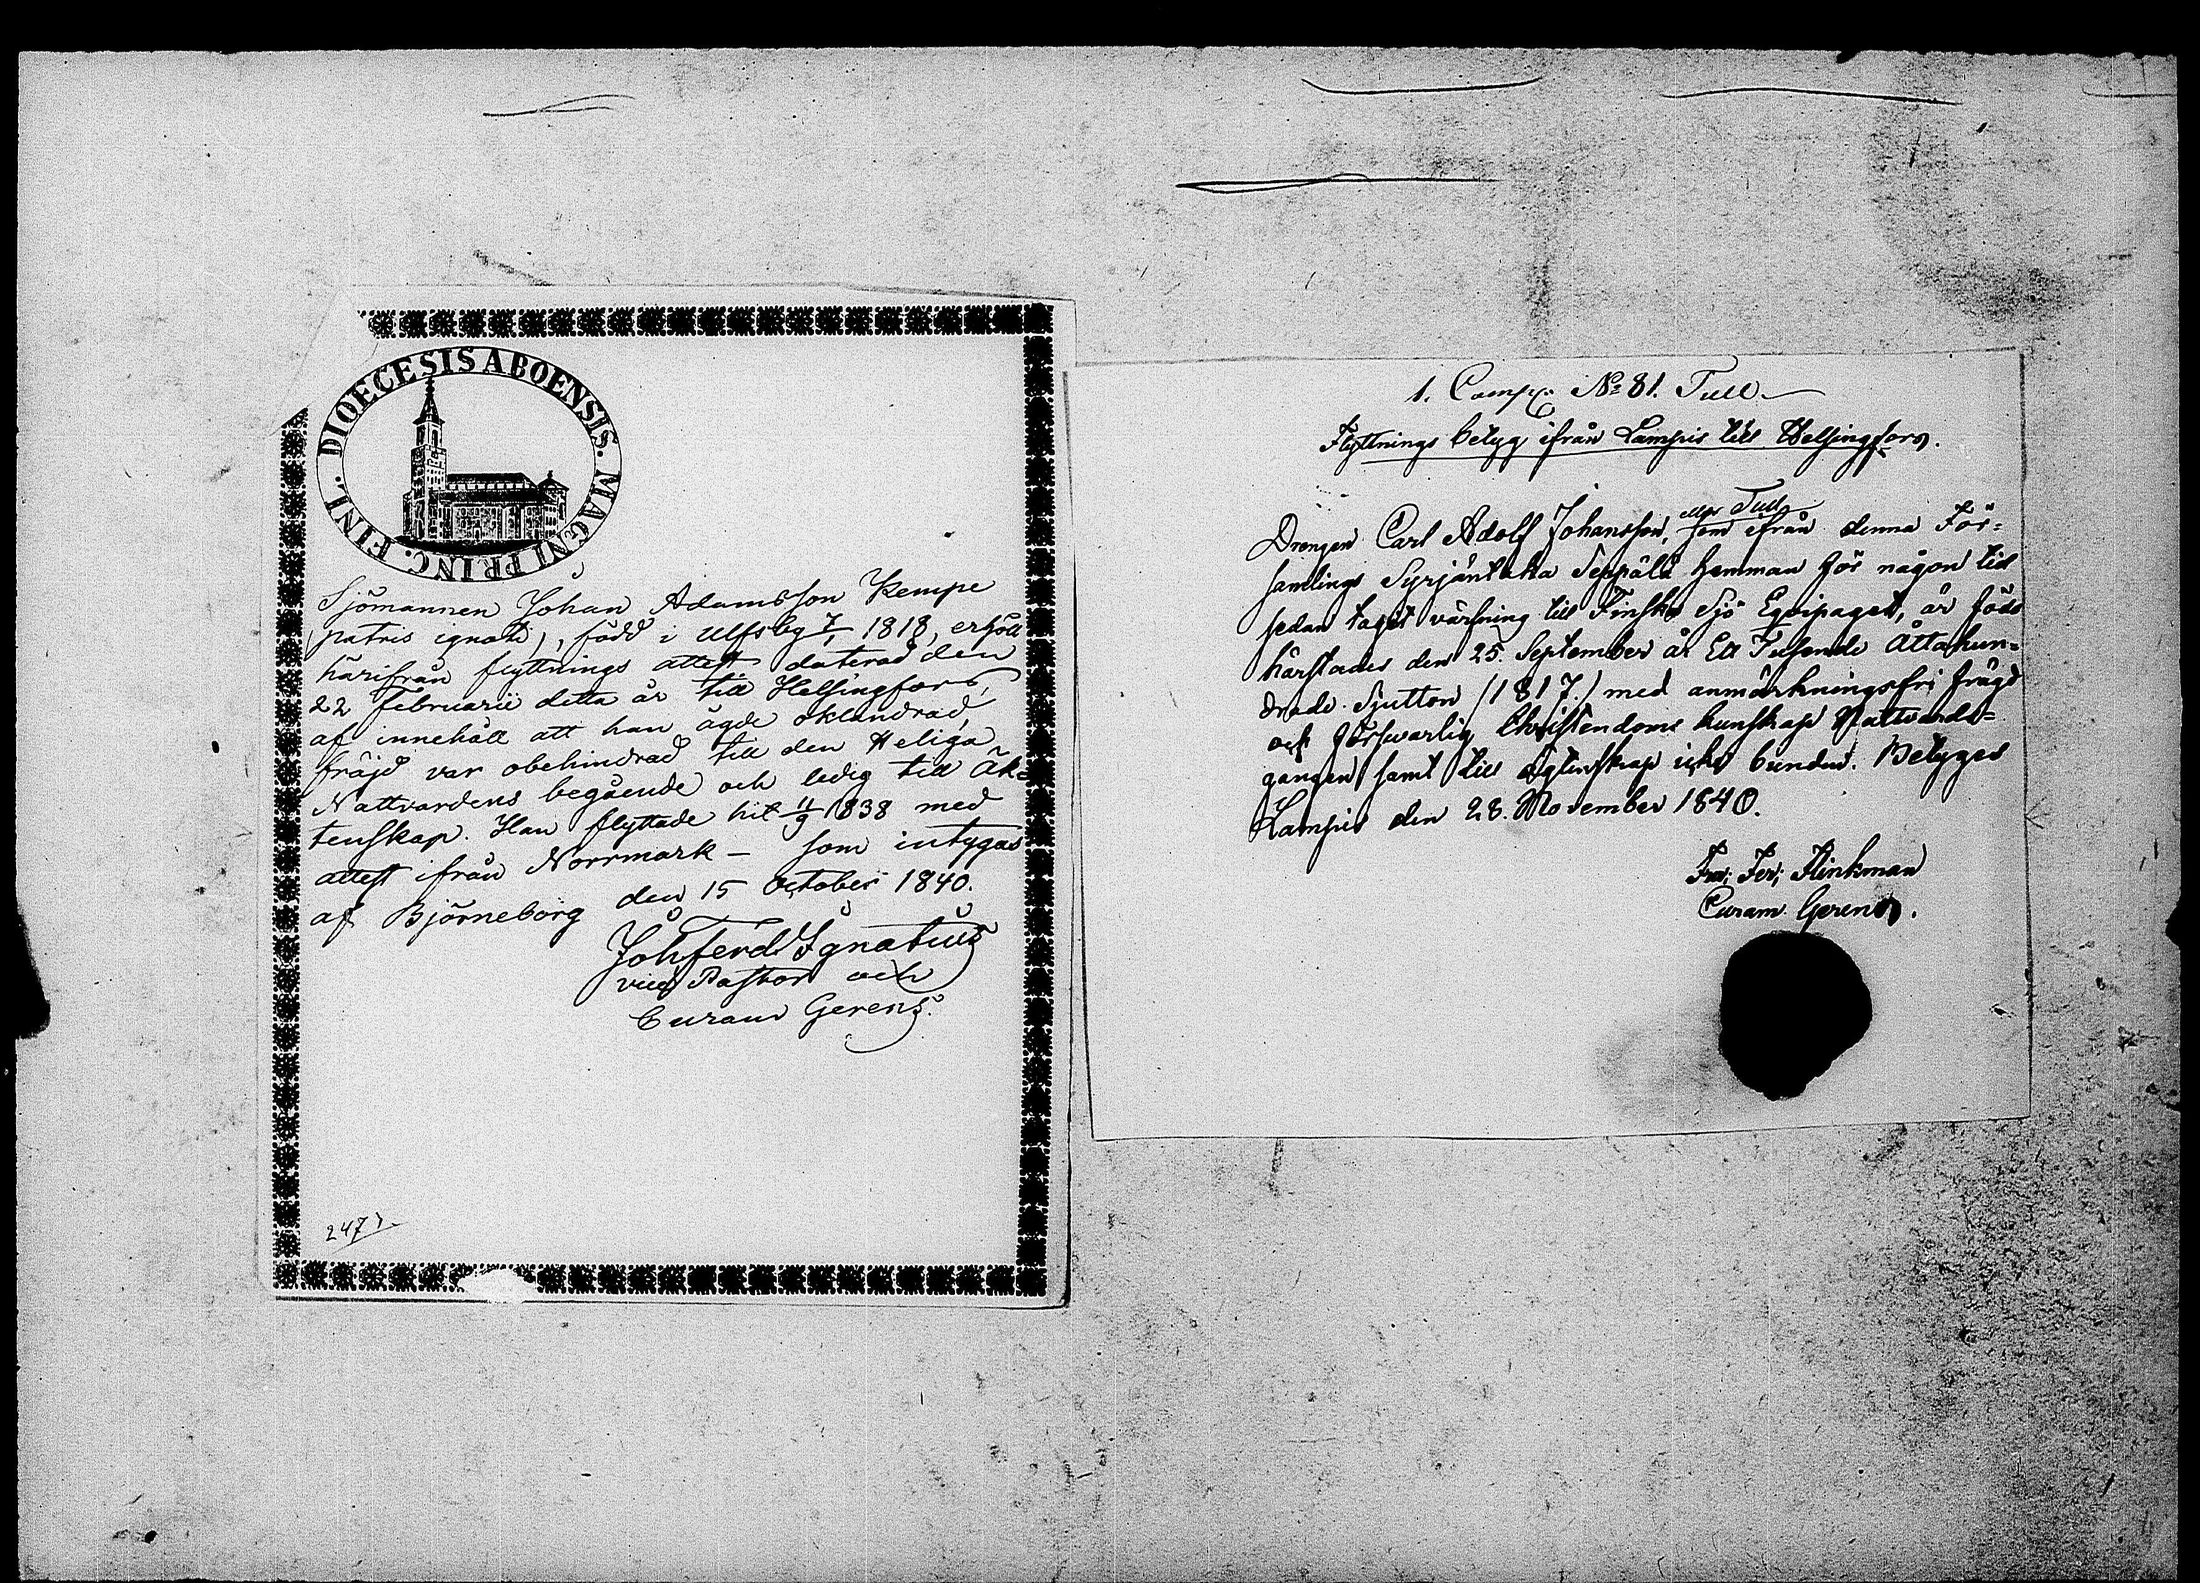 DIOECESIS ABOENSIS. MAGNI PRINC. FINL.
Sjömannen Johan Adamsson Kempe
(patris ignoti), född i Ulfsby 7/1 1818, erhöll
härifrån flyttnings attest daterad den
22 Februarii detta år till Helsingfors,
af innehåll att han ägde oklandrad
fräjd var obehindrad till den Heliga
Nattvardens begående och ledig till Äk=
tenskap. Han flyttade hit 11/9 1838 med
attest ifrån Norrmark – som intygas
af Björneborg den 15 October 1840.
Joh Ferd Ignatius
vice Pastor och
Curam Gerens.
247
1. Comp: No 81. Tull
Flyttnings betyg ifrån Lampis till Helsingfors.
Drengen Carl Adolf Johansson, eller Tull som ifrån denna För=
samlings Syrjäntaka Seppälä hemman för någon tid
sedan tagit värfning till Finska Sjö Equipaget, är född
härstädes den 25. September år Ett Tusende Åttahun=
drade Sjutton (1817.) med anmärkningsfri frägd
och försvarlig Christendoms kunskap Nattvards=
gången samt till ägtenskap icke bunden. Betygas
Lampis den 28. November 1840.
Flinkman
Curam Gerens.